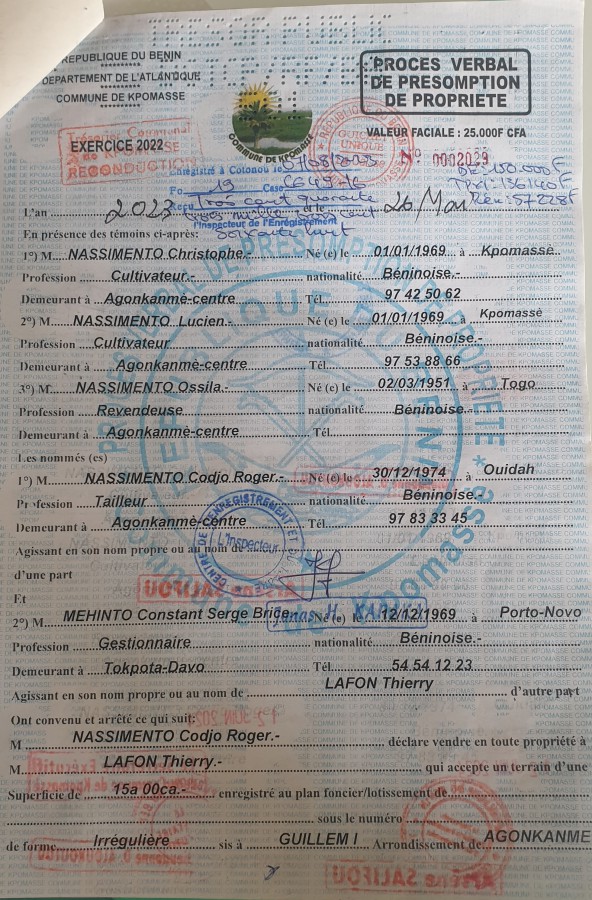 TRESOR PUBLIC
REPUBLIQUE DU BENIN
**********
DEPARTEMENT DE L'ATLANTIQUE
**********
COMMUNE DE KPOMASSE
**********
COMMUNE DE KPOMASSE
PROCES VERBAL
DE PRESOMPTION
DE PROPRIETE
EXERCICE 2022
VALEUR FACIALE : 25.000F CFA
N° 0002029
Trésorier Communal
de KPOMASSE
RECONDUCTION
REPUBLIQUE DU BENIN
GUICHET
UNIQUE
Enregistré à Cotonou le
Fo 19 Case
Reçu Trois cent quarante
l'Inspecteur de l'Enregistrement
L'an 2023 et le 26 Mai
En présence des témoins ci-après:
1°) M. NASSIMENTO Christophe.- Né (e) le 01/01/1969 à Kpomassè
Profession Cultivateur.- nationalité Béninoise.-
Demeurant à Agonkanmè-centre Tél. 97 42 50 62
2°) M. NASSIMENTO Lucien.- Né (e) le 01/01/1969 à Kpomassè
Profession Cultivateur nationalité Béninoise.-
Demeurant à Agonkanmè-centre Tél. 97 53 88 66
3°) M. NASSIMENTO Ossila.- Né (e) le 02/03/1951 à Togo
Profession Revendeuse nationalité Béninoise.-
Demeurant à Agonkanmè-centre Tél.
Les nommés (es)
1°) M. NASSIMENTO Codjo Roger.- Né (e) le 30/12/1974 à Ouidah
Profession Tailleur nationalité Béninoise.-
Demeurant à Agonkanmè-centre Tél. 97 83 33 45
Agissant en son nom propre ou au nom de
L'Inspecteur
d'une part
Et
2°) M. MEHINTO Constant Serge Brice Né (e) le 12/12/1969 à Porto-Novo
Profession Gestionnaire nationalité Béninoise.-
Demeurant à Tokpota-Davo Tél. 54 54 12 23
Agissant en son nom propre ou au nom de LAFON Thierry d'autre part
Ont convenu et arrêté ce qui suit:
M NASSIMENTO Codjo Roger.- déclare vendre en toute propriété à
M LAFON Thierry.- qui accepte un terrain d'une
Superficie de 15a 00ca.- enregistré au plan foncier/lotissement de
sous le numéro
de forme Irrégulière sis à GUILLEM I Arrondissement de AGONKANME